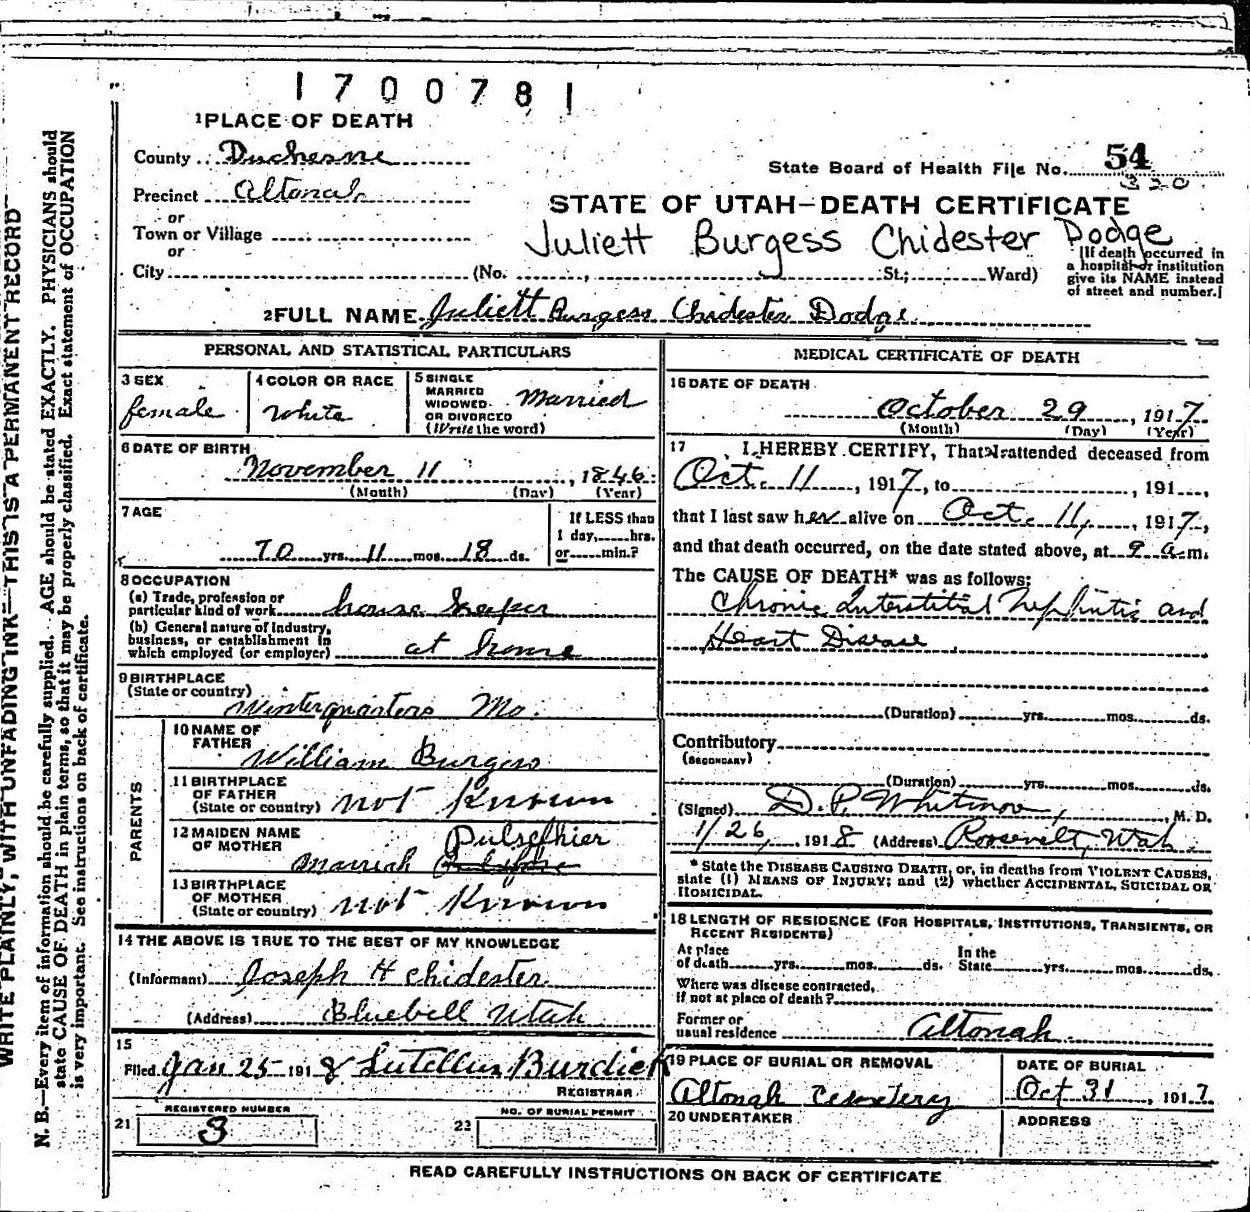 1700781
1 PLACE OF DEATH
County Duchesne
State Board of Health File No. 54
320
Precinct Altonah
STATE OF UTAH—DEATH CERTIFICATE
or
Town or Village
Juliett Burgess Chidester Dodge
or
City (No. , St.; Ward)
[If death occurred in
a hospital or institution
give its NAME instead
of street and number.]
2 FULL NAME Juliett Burgess Chidester Dodge
PERSONAL AND STATISTICAL PARTICULARS
3 SEX
female
4 COLOR OR RACE
White
5 SINGLE
MARRIED
WIDOWED
OR DIVORCED
(Write the word)
Married
6 DATE OF BIRTH
November 11, 1846
(Month) (Day) (Year)
7 AGE
70 yrs. 11 mos. 18 ds.
If LESS than
1 day, hrs.
or min.?
8 OCCUPATION
(a) Trade, profession or
particular kind of work house keeper
(b) General nature of industry,
business, or establishment in
which employed (or employer) at home
9 BIRTHPLACE
(State or country)
Winterquarters Mo.
PARENTS
10 NAME OF
FATHER
William Burgess
11 BIRTHPLACE
OF FATHER
(State or country) not Known
12 MAIDEN NAME
OF MOTHER
Pulsephier
Marriah
13 BIRTHPLACE
OF MOTHER
(State or country) not Known
14 THE ABOVE IS TRUE TO THE BEST OF MY KNOWLEDGE
(Informant) Joseph H Chidester
(Address) Bluebell Utah
15
Filed Jan 25 1918 Lutellus Burdick
REGISTRAR
REGISTERED NUMBER
21 3
NO. OF BURIAL PERMIT
22
MEDICAL CERTIFICATE OF DEATH
16 DATE OF DEATH
October 29, 1917
(Month) (Day) (Year)
17 I HEREBY CERTIFY, That I attended deceased from
Oct. 11, 1917, to , 191 ,
that I last saw her alive on Oct. 11, 1917,
and that death occurred, on the date stated above, at 9 a.m.
The CAUSE OF DEATH* was as follows:
Chronic Interstitial Nephritis and
Heart Disease
(Duration) yrs. mos. ds.
Contributory
(SECONDARY)
(Duration) yrs. mos. ds.
(Signed) D. P. Whitmore, M. D.
1/26, 1918 (Address) Roosevelt, Utah.
* State the DISEASE CAUSING DEATH, or, in deaths from VIOLENT CAUSES,
state (1) MEANS OF INJURY; and (2) whether ACCIDENTAL, SUICIDAL OR
HOMICIDAL.
18 LENGTH OF RESIDENCE (FOR HOSPITALS, INSTITUTIONS, TRANSIENTS, OR
RECENT RESIDENTS)
At place
of death yrs. mos. ds.
In the
State yrs. mos. ds.
Where was disease contracted,
If not at place of death?
Former or
usual residence Altonah
19 PLACE OF BURIAL OR REMOVAL
Altonah Cemetery
DATE OF BURIAL
Oct 31, 1917
20 UNDERTAKER
ADDRESS
READ CAREFULLY INSTRUCTIONS ON BACK OF CERTIFICATE
WRITE PLAINLY, WITH UNFADING INK—THIS IS A PERMANENT RECORD
N. B.—Every item of information should be carefully supplied. AGE should be stated EXACTLY. PHYSICIANS should
state CAUSE OF DEATH in plain terms, so that it may be properly classified. Exact statement of OCCUPATION
is very important. See instructions on back of certificate.